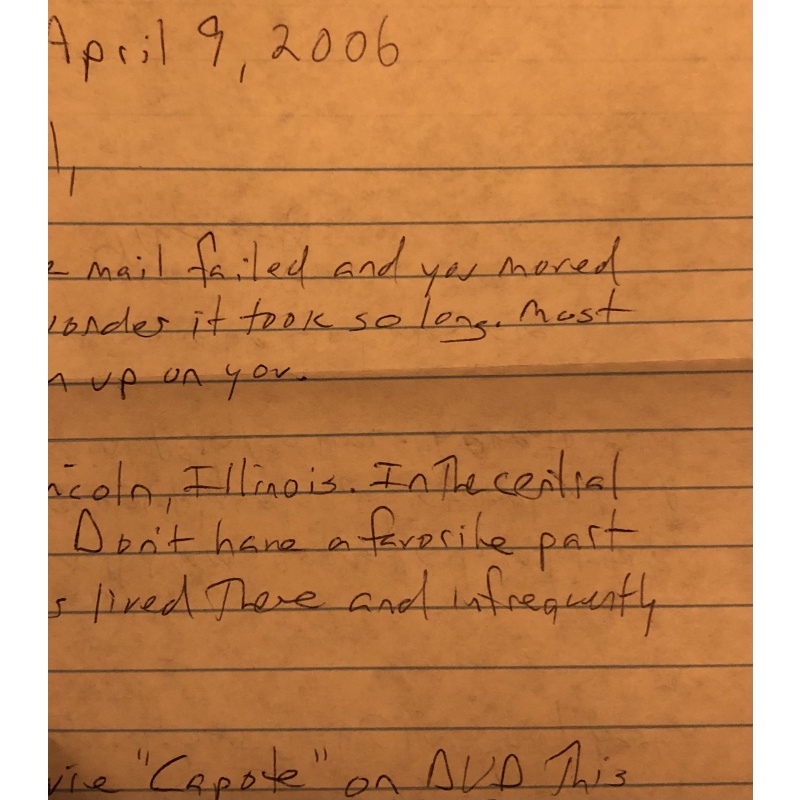 April 9, 2006
l,
e mail failed and you moved
onder it took so long. Most
n up on you.
ncoln, Illinois. In The central
Don't have a favorite part
s lived There and infrequently
vie "Capote" on DVD This